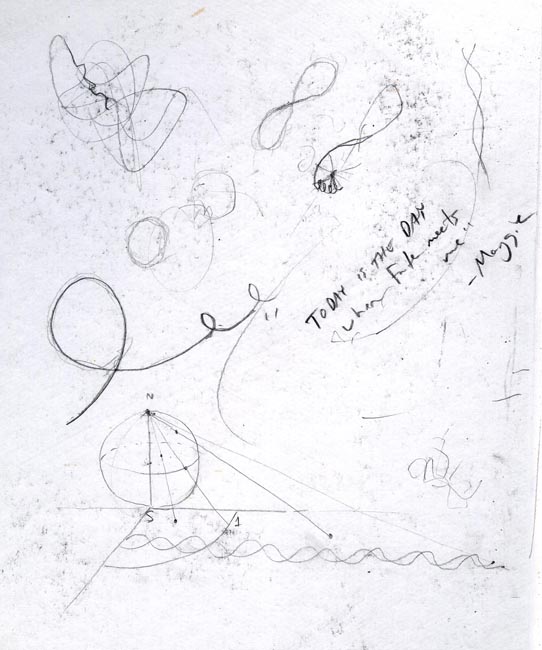 "TODAY IS THE DAY
when Fate meets
me"
- Maggie
N
S
1